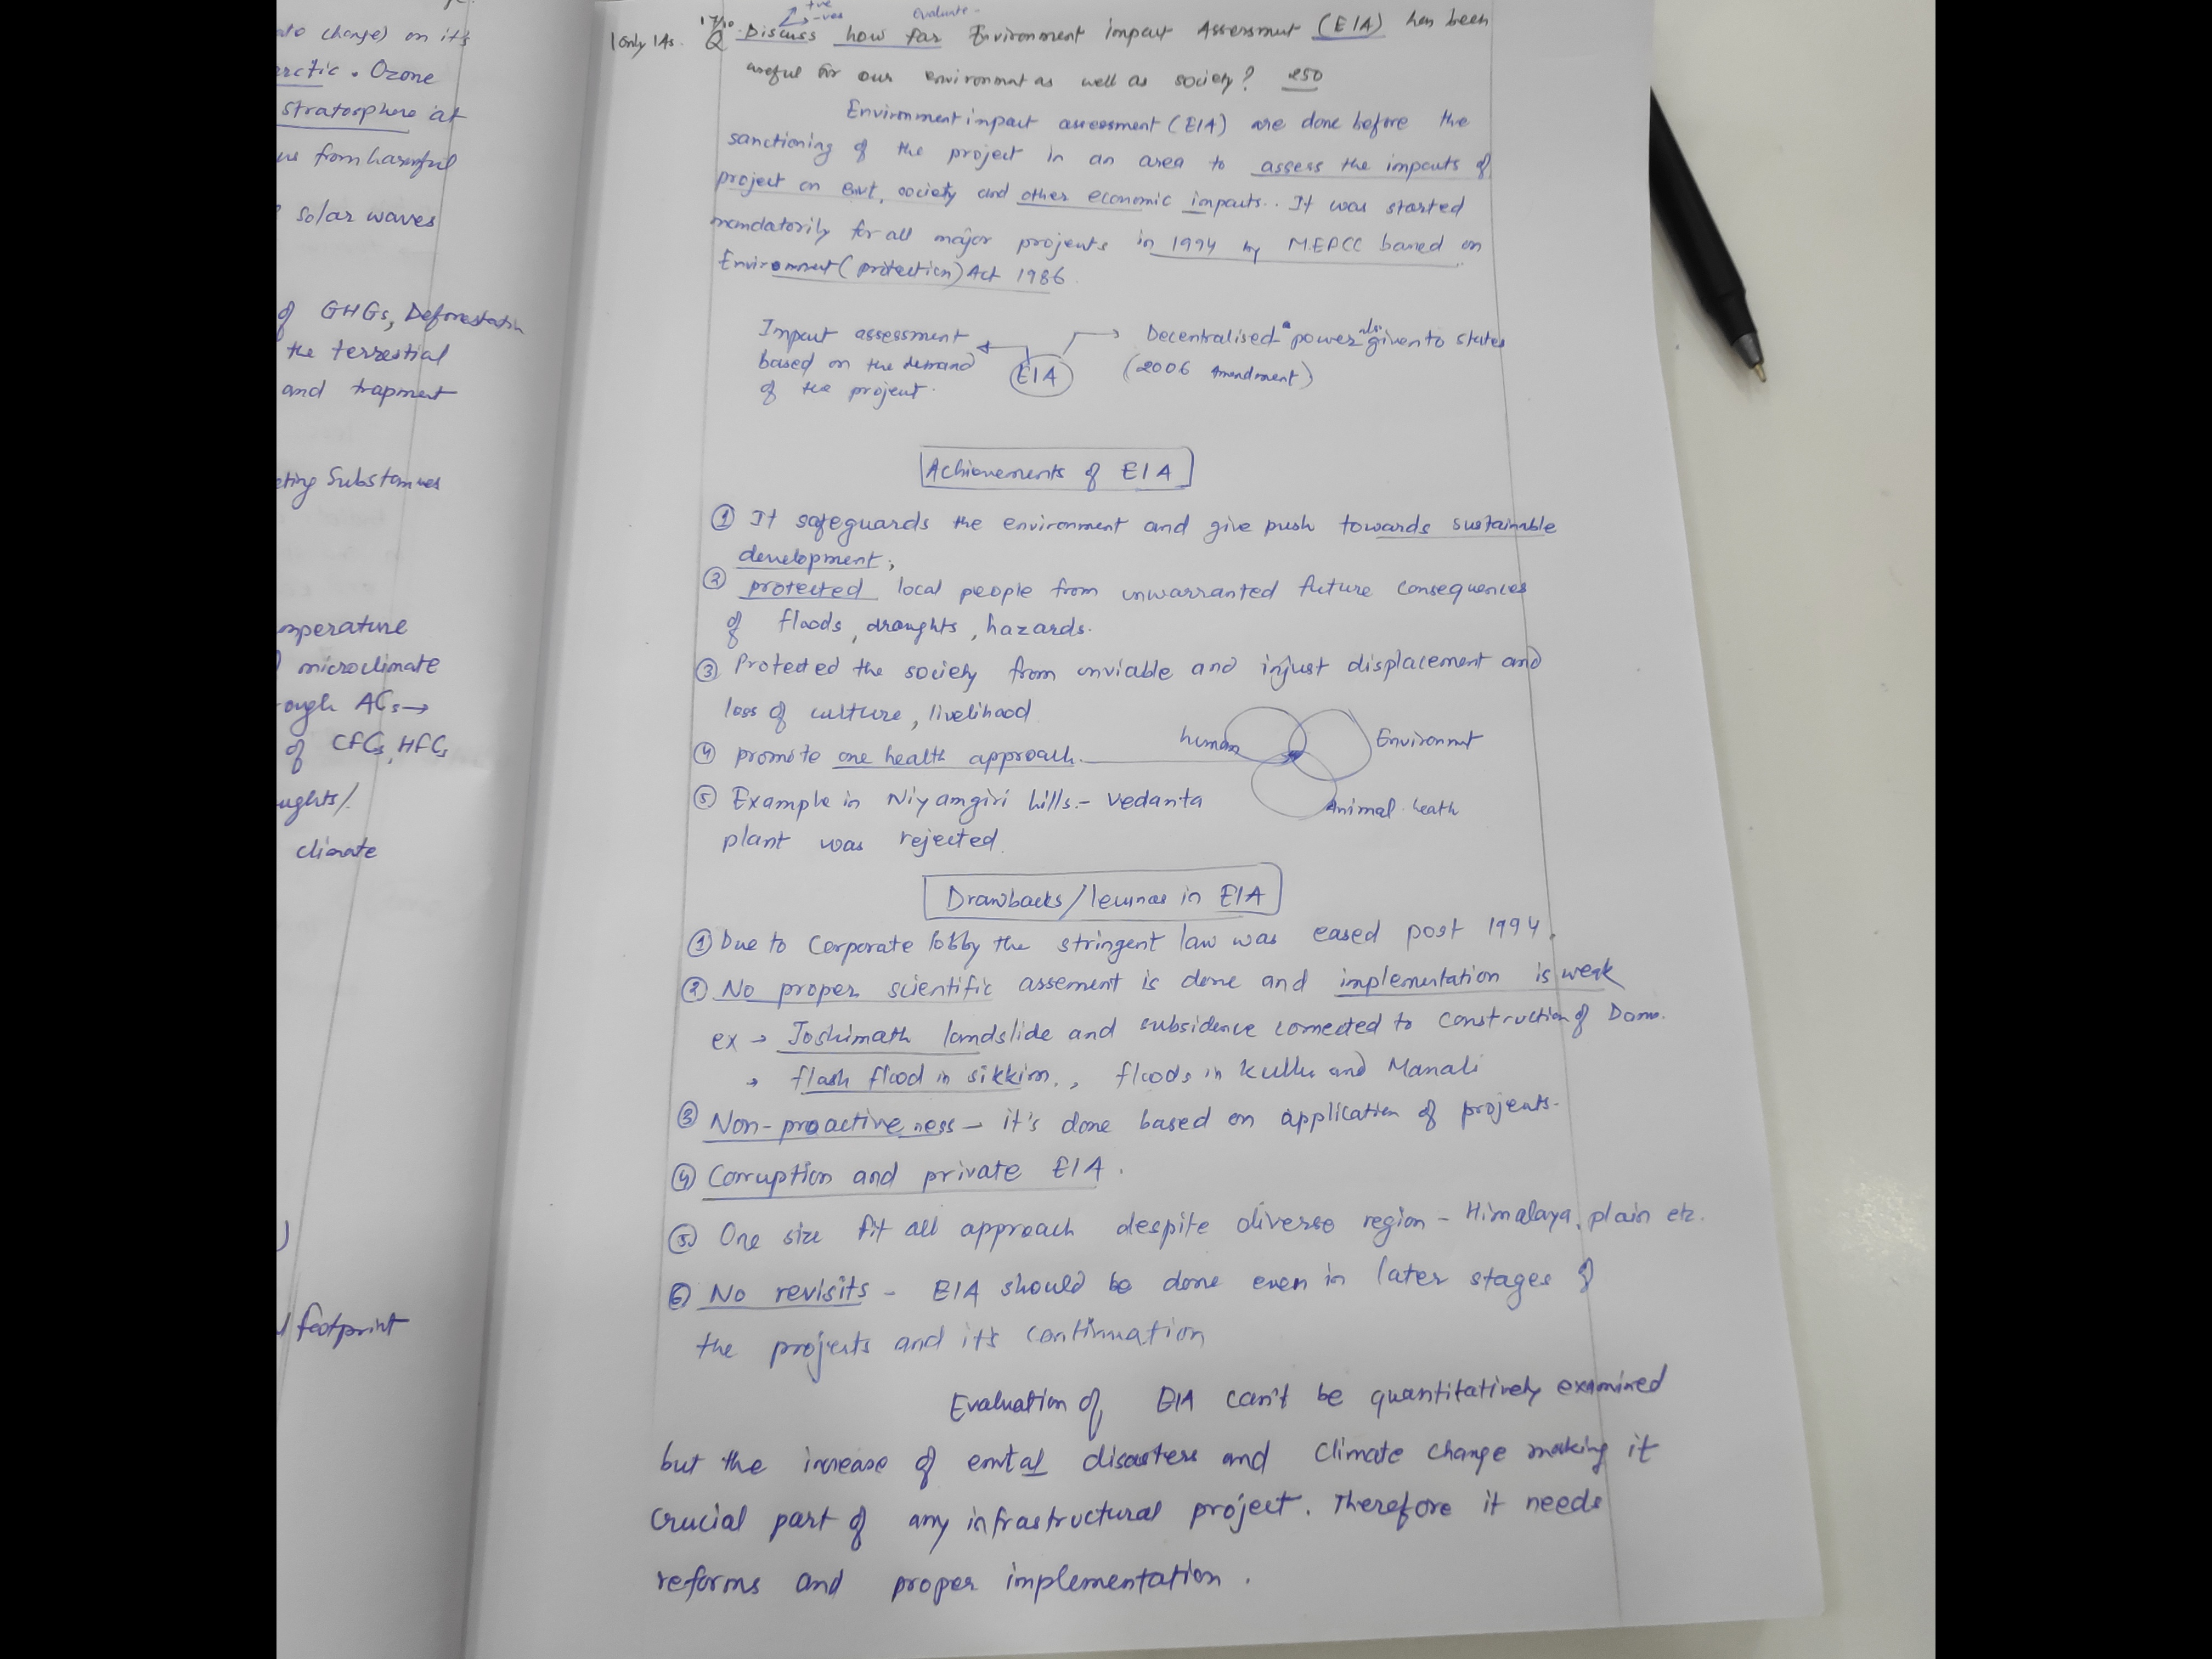 ato change) on it's
arctic. Ozone
stratosphere at
from harmful
solar waves
of GHGs, Deforestatin
the terrestial
and trapment
eting Substannes
mperature
microclimate
ough ACs→
of CFCs, HFCs
ughts/
climate
footprint
+ve
-ves
evaluate-
17/10
1only IAs. Q. Discuss how far Environment impact Assessment (EIA) has been
useful for our environment as well as society? 250
Environment impact assessment (EIA) are done before the
sanctioning of the project in an area to assess the impacts of
project on envt, society and other economic impacts.. It was started
mandatorily for all major projects in 1994 by MEFCC based on
Environment (protection) Act 1986
Impact assessment
based on the demand
of the project.
EIA
Decentralised power also given to states
(2006 Amendment)
Achievements of EIA
① It safeguards the environment and give push towards sustainable
development,
② protected local people from unwarranted future consequences
of floods, draughts, hazards.
③ Protected the society from unviable and injust displacement and
loss of culture, livelihood
④ promote one health approach.
human
Environmnt
Animal heath
⑤ Example in Niyamgiri hills.- vedanta
plant was rejected.
Drawbacks/lecunas in EIA
① Due to Corporate lobby the stringent law was eased post 1994.
② No proper scientific assement is done and implementation is weak
ex → Joshimath landslide and subsidence connected to construction of Dams.
→ flash flood in sikkim., floods in kullu and Manali
③ Non-proactiveness — it's done based on application of projects-
④ Corruption and private EIA.
⑤ One size fit all approach despite diverse region - Himalaya, plain etc.
⑥ No revisits - EIA should be done even in later stages of
the projects and it's continuation
Evaluation of EIA can't be quantitatively examined
but the increase of envtal disasters and climate change making it
crucial part of any infrastructural project. Therefore it needs
reforms and proper implementation.